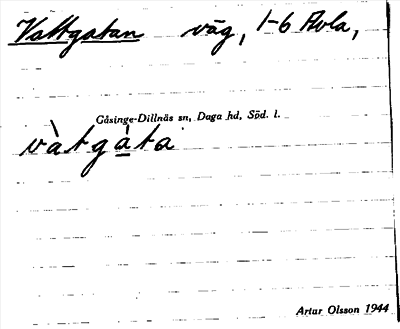 Vattgatan väg, 1-6 Avla,
Gåsinge-Dillnäs sn, Daga hd, Söd. l.
vàtgàta
Artur Olsson 1944